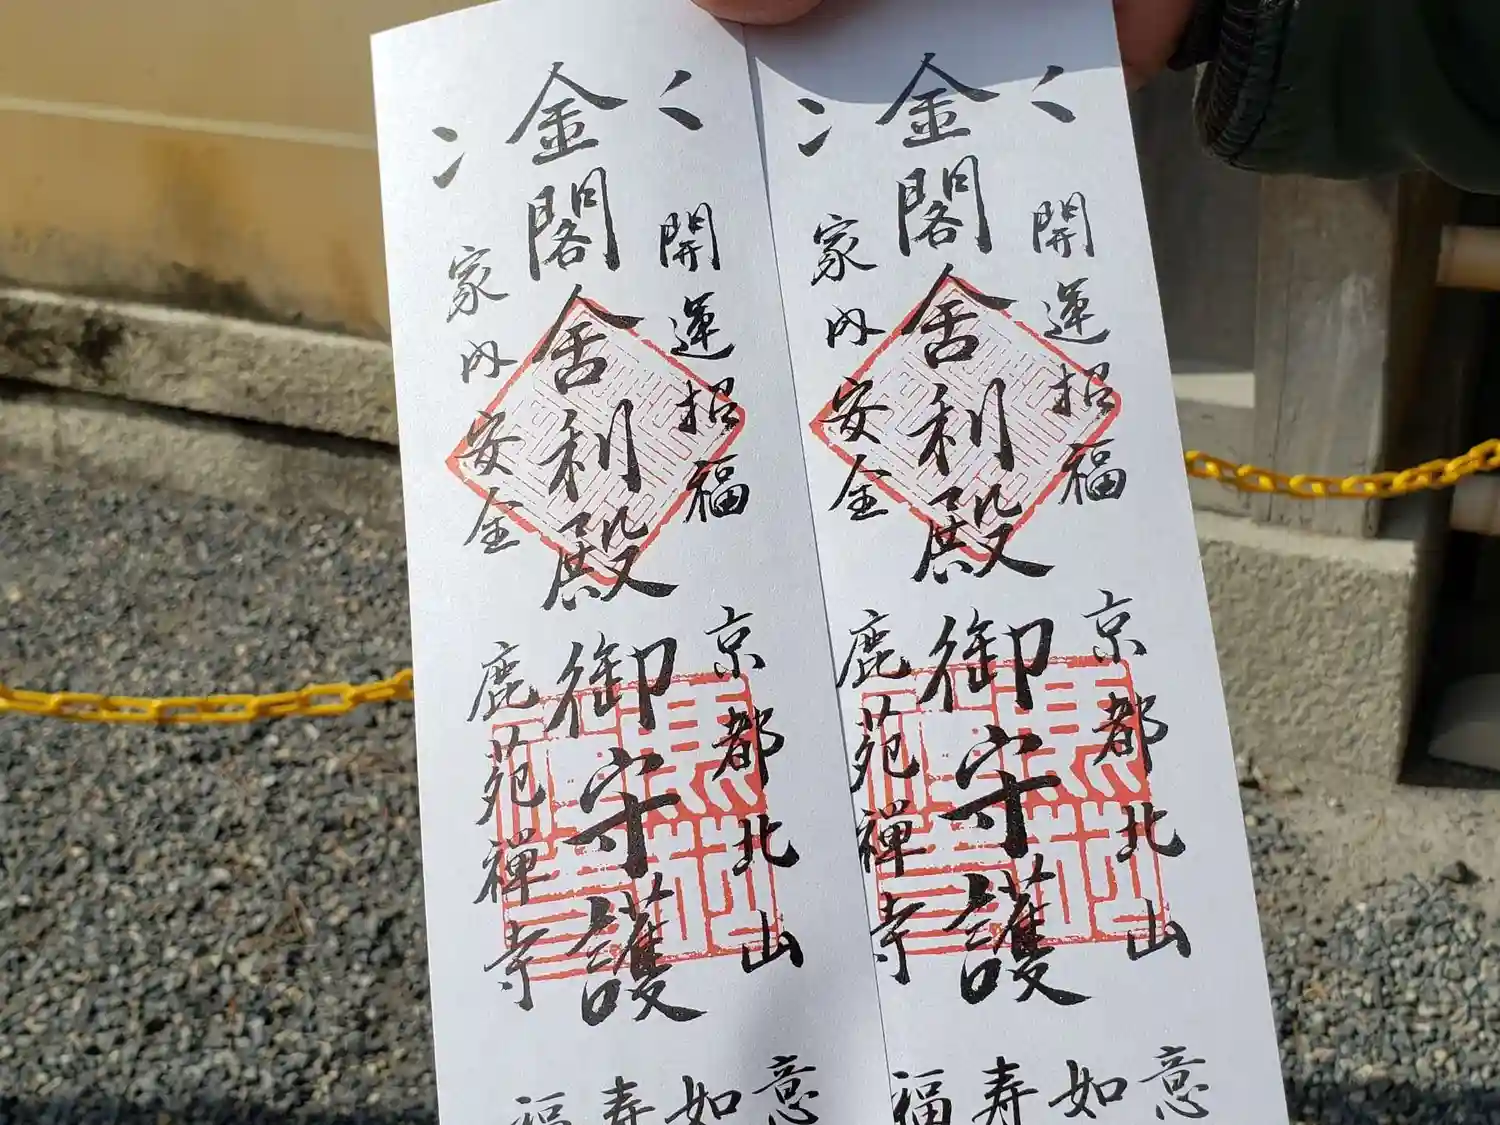 開運招福
金閣舎利殿
家内安全
京都北山
御守護
鹿苑禅寺
意
如
寿
福
開運招福
金閣舎利殿
家内安全
京都北山
御守護
鹿苑禅寺
意
如
寿
福